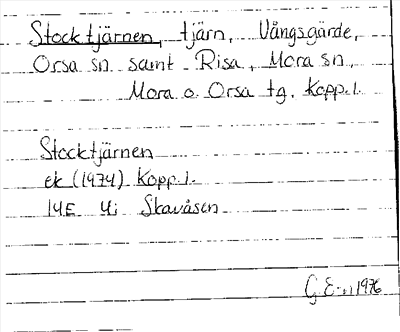 Stocktjärnen, tjärn, Vångsgärde,
Orsa sn samt Risa, Mora sn,
Mora o. Orsa tg, Kopp.l.
Stocktjärnen
ek (1974) Kopp.l.
14E 4i Skavåsen
G.E-n 1976